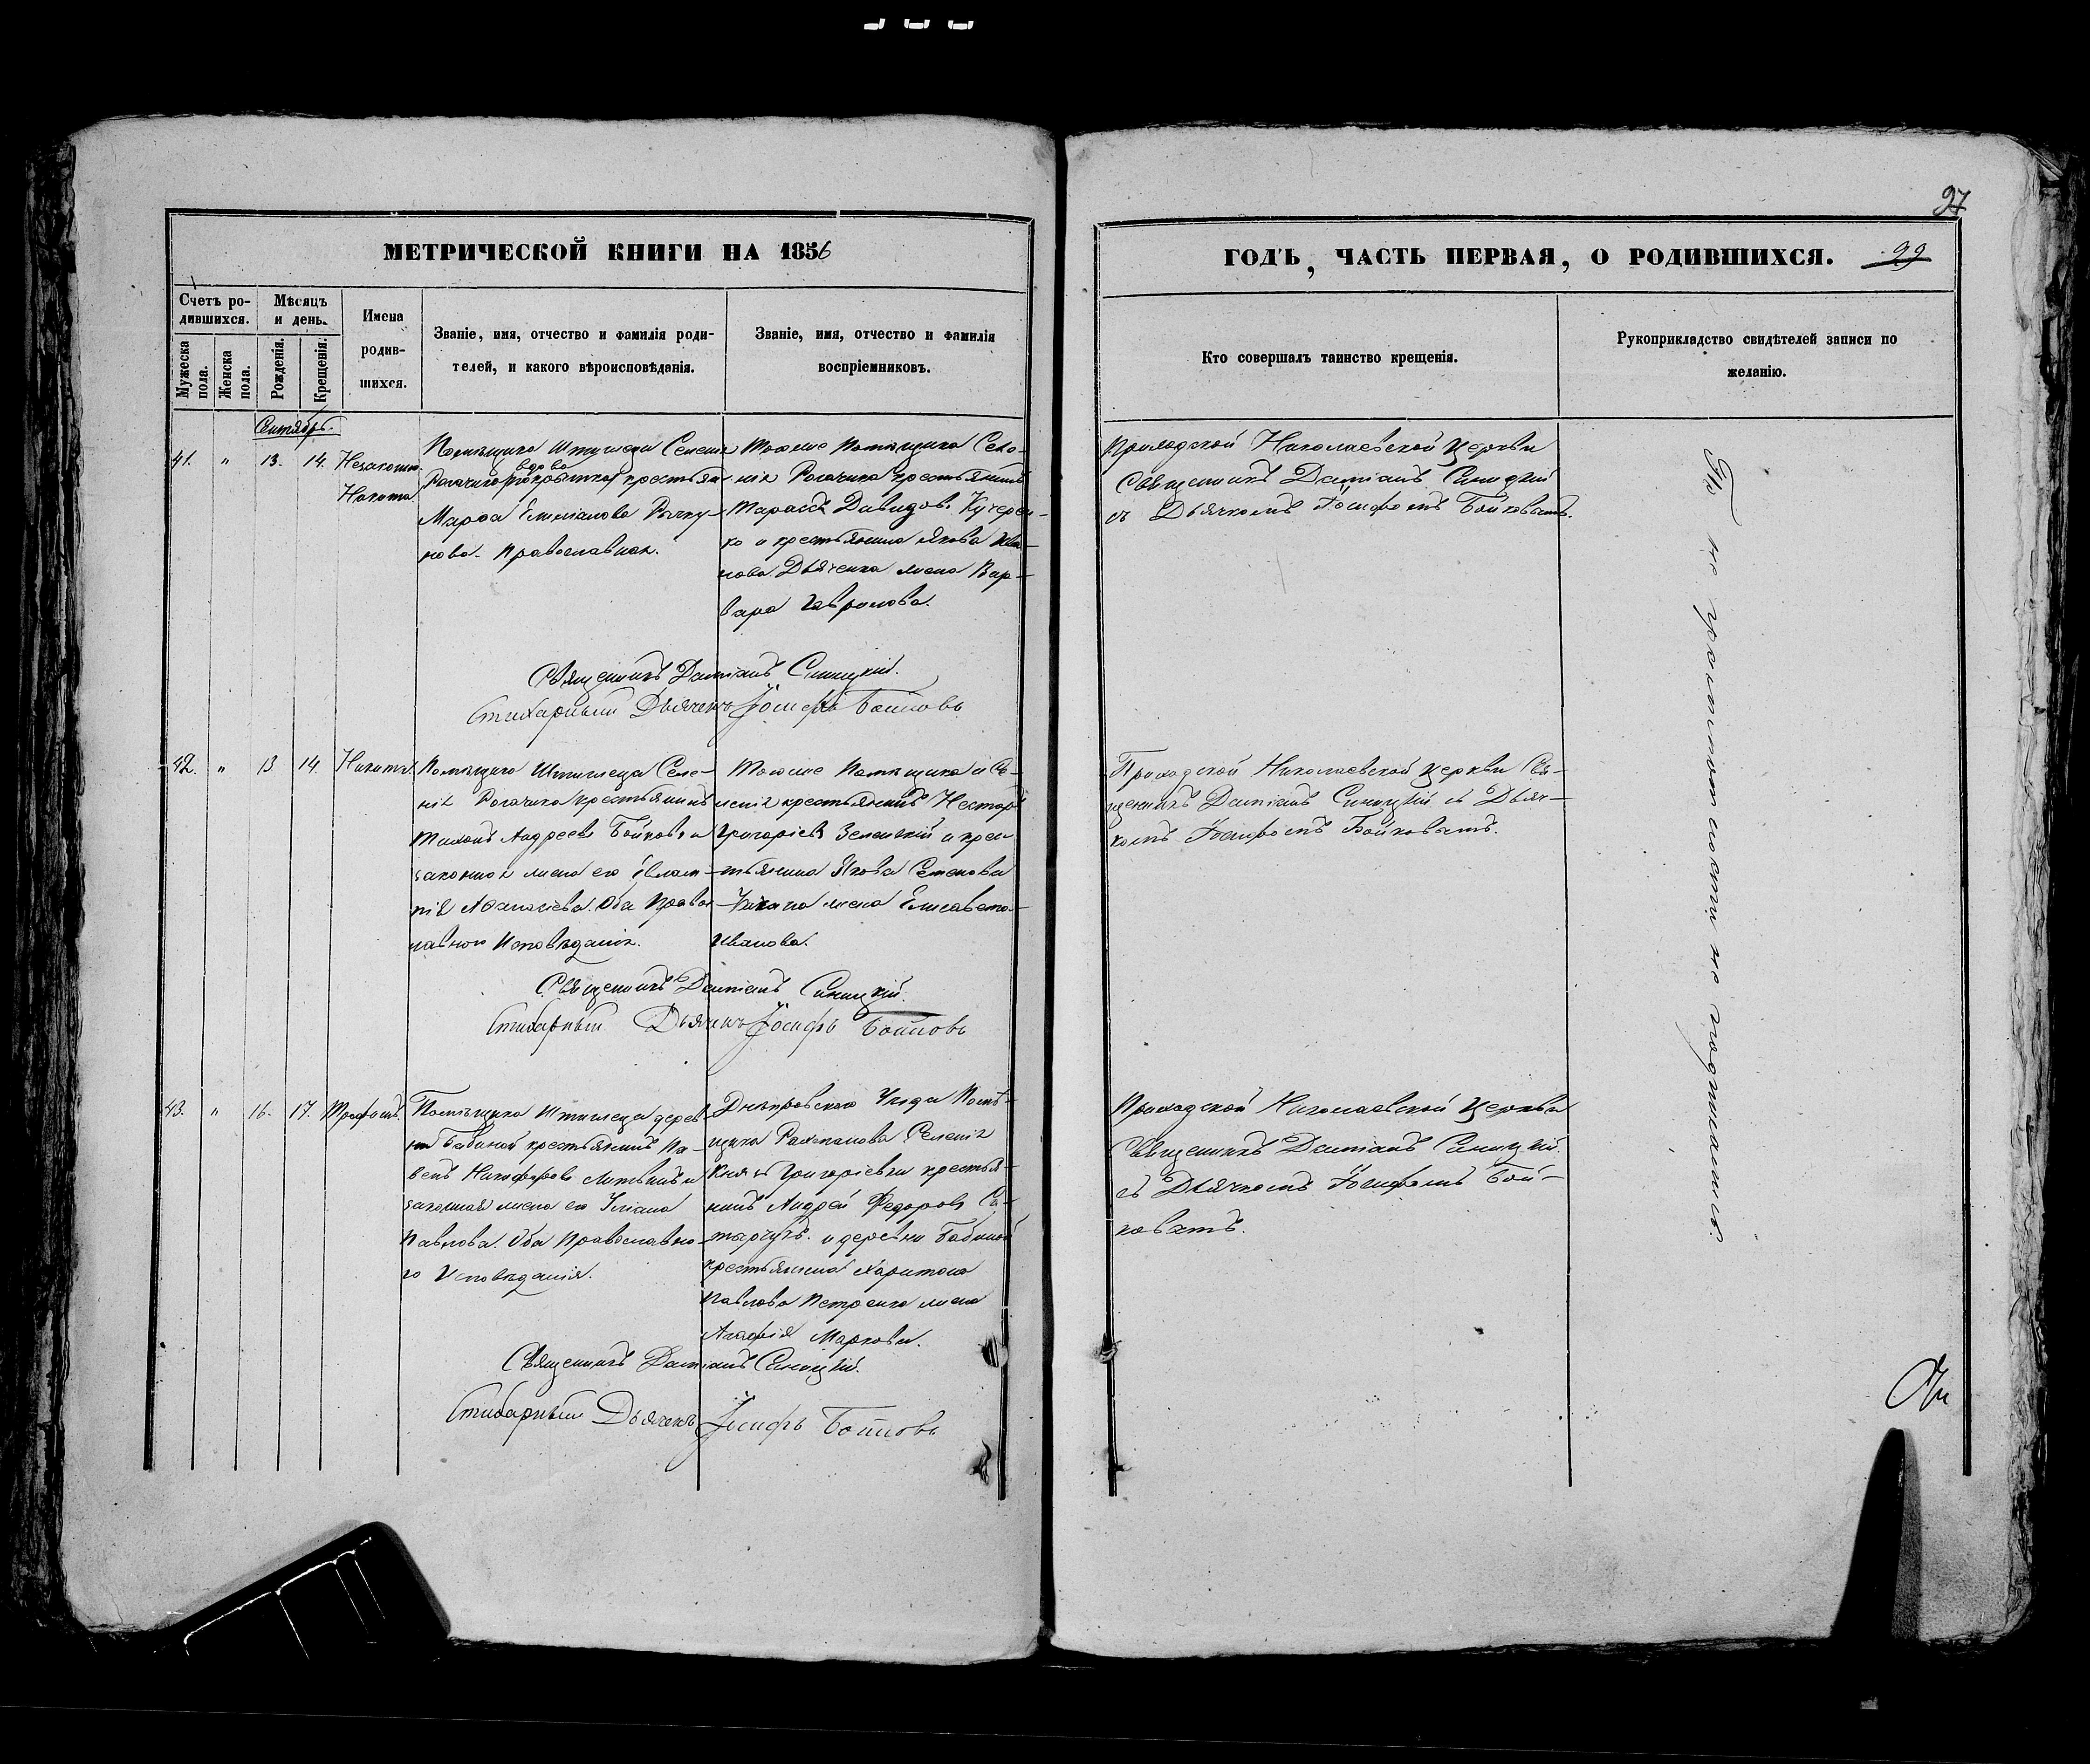 97
МЕТРИЧЕСКОЙ КНИГИ НА 1856
Счетъ ро-
дившихся.
Мужеска
пола.
Женска
пола.
Мѣсяцъ
и день.
Рожденія.
Крещенія.
Имена
родив-
шихся.
Званіе, имя, отчество и фамилія роди-
телей, и какого вѣроисповѣданія.
Званіе, имя, отчество и фамилія
воспріемниковъ.
Сентябрь.
41. " 13. 14.
Незаконн.
Никита
Помѣщика
вдова
Рогачика крестьян
Марфа Емиліанова
нова. Православная.
Тогоже Помѣщика Селе-
нія Рогачика крестьянинъ
Тарасъ Давидовъ Кучерен-
ко и крестьянина Якова Ива-
нова Дьяченка жена Вар-
вара Гаврилова.
Священникъ Даміанъ Синицкій.
Стихарный Дьячекъ Іосифъ Бойковъ
42. " 13. 14. Никита.
Помѣщика Селе-
нія Рогачика крестьянинъ
Тихонъ Андреевъ Бойковъ и
законная жена его Евлам-
пія Афанасіева. Оба Правос-
лавного Исповѣданія.
Тогоже Помѣщика и Се-
ленія крестьянинъ Несторъ
Григоріевъ Зеленскій и крес-
тьянина Якова Семенова
жена Елисавета
Иванова.
Священникъ Даміанъ Синицкій.
Стихарный Дьячекъ Іосифъ Бойковъ
43. " 16. 17. Трофимъ.
Помѣщика дерев
ни Бабиной крестьянинъ Па-
велъ Никифоровъ Литвинъ и
законная жена его Уліана
Павлова. Оба Православно-
го Исповѣданія.
Днѣпровскаго Уезда Помѣ-
щика Рахманова Селенія
Князе Григоріевки крестья-
нинъ Андрей Федоровъ
и деревни Бабиной
крестьянина Харитона
Павлова Петренка жена
Агафія Маркова.
Священникъ Даміанъ Синицкій.
Стихарный Дьячекъ Іосифъ Бойковъ
ГОДЪ, ЧАСТЬ ПЕРВАЯ, О РОДИВШИХСЯ. 99
Кто совершалъ таинство крещенія.
Рукоприкладство свидѣтелей записи по
желанію.
Приходской Николаевской церкви
Священникъ Даміанъ Синицкій
съ Дьячкомъ Іосифомъ Бойковымъ.
Приходской Николаевской церкви Свя-
щенникъ Даміанъ Синицкій съ Дьяч-
комъ Іосифомъ Бойковымъ.
Приходской Николаевской Церкви
Священникъ Даміанъ Синицкій
съ Дьячкомъ Іосифомъ Бой-
ковымъ.
По не грамотности не подписались